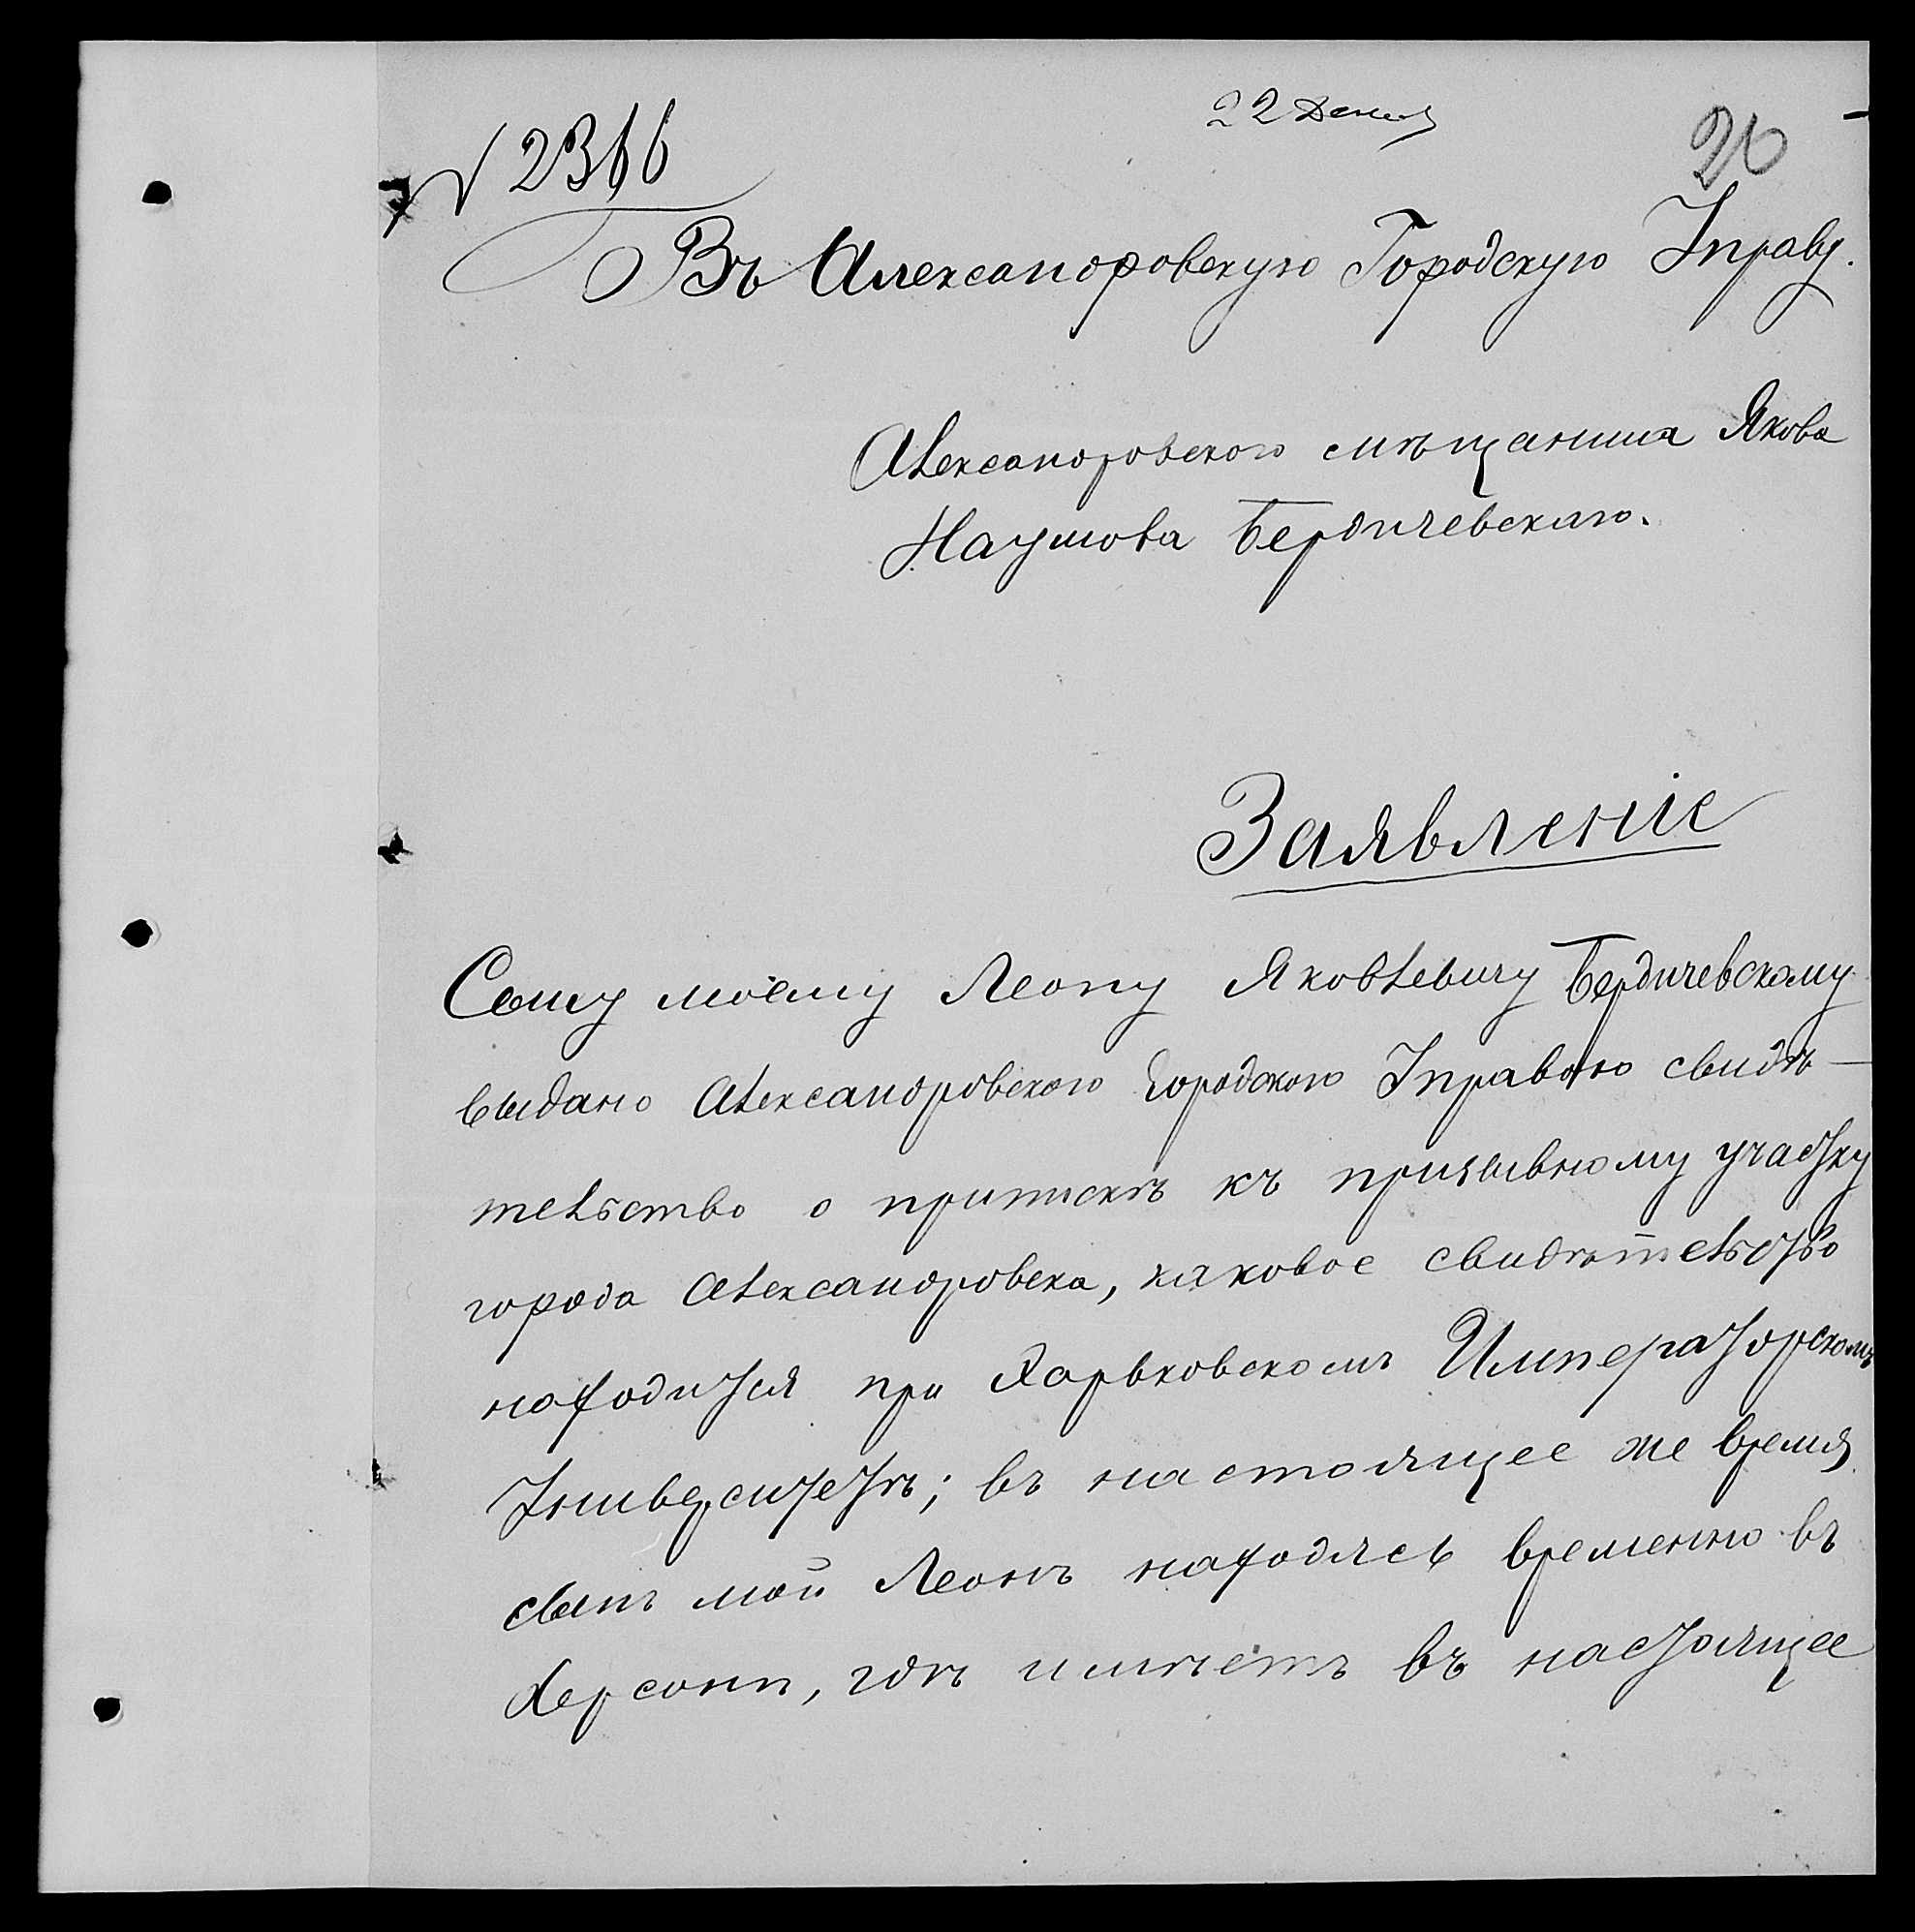 22 Декаб
26
№ 2366
Въ Александровскую Городскую Управу.
Александровскаго мѣщанина Якова
Наумова Бердичевскаго.
Заявленіе
Сыну моему Леону Яковлевичу Бердичевскому
выдано Александровскою Городскою Управою свидѣ-
тельство о припискѣ къ призывному участку
города Александровска, каковое свидѣтельство
находится при Харьковскомъ Императорскомъ
Университетѣ; въ настоящее же время
сынъ мой Леонъ находясь временно въ
Херсонѣ, гдѣ имѣетъ въ настоящее